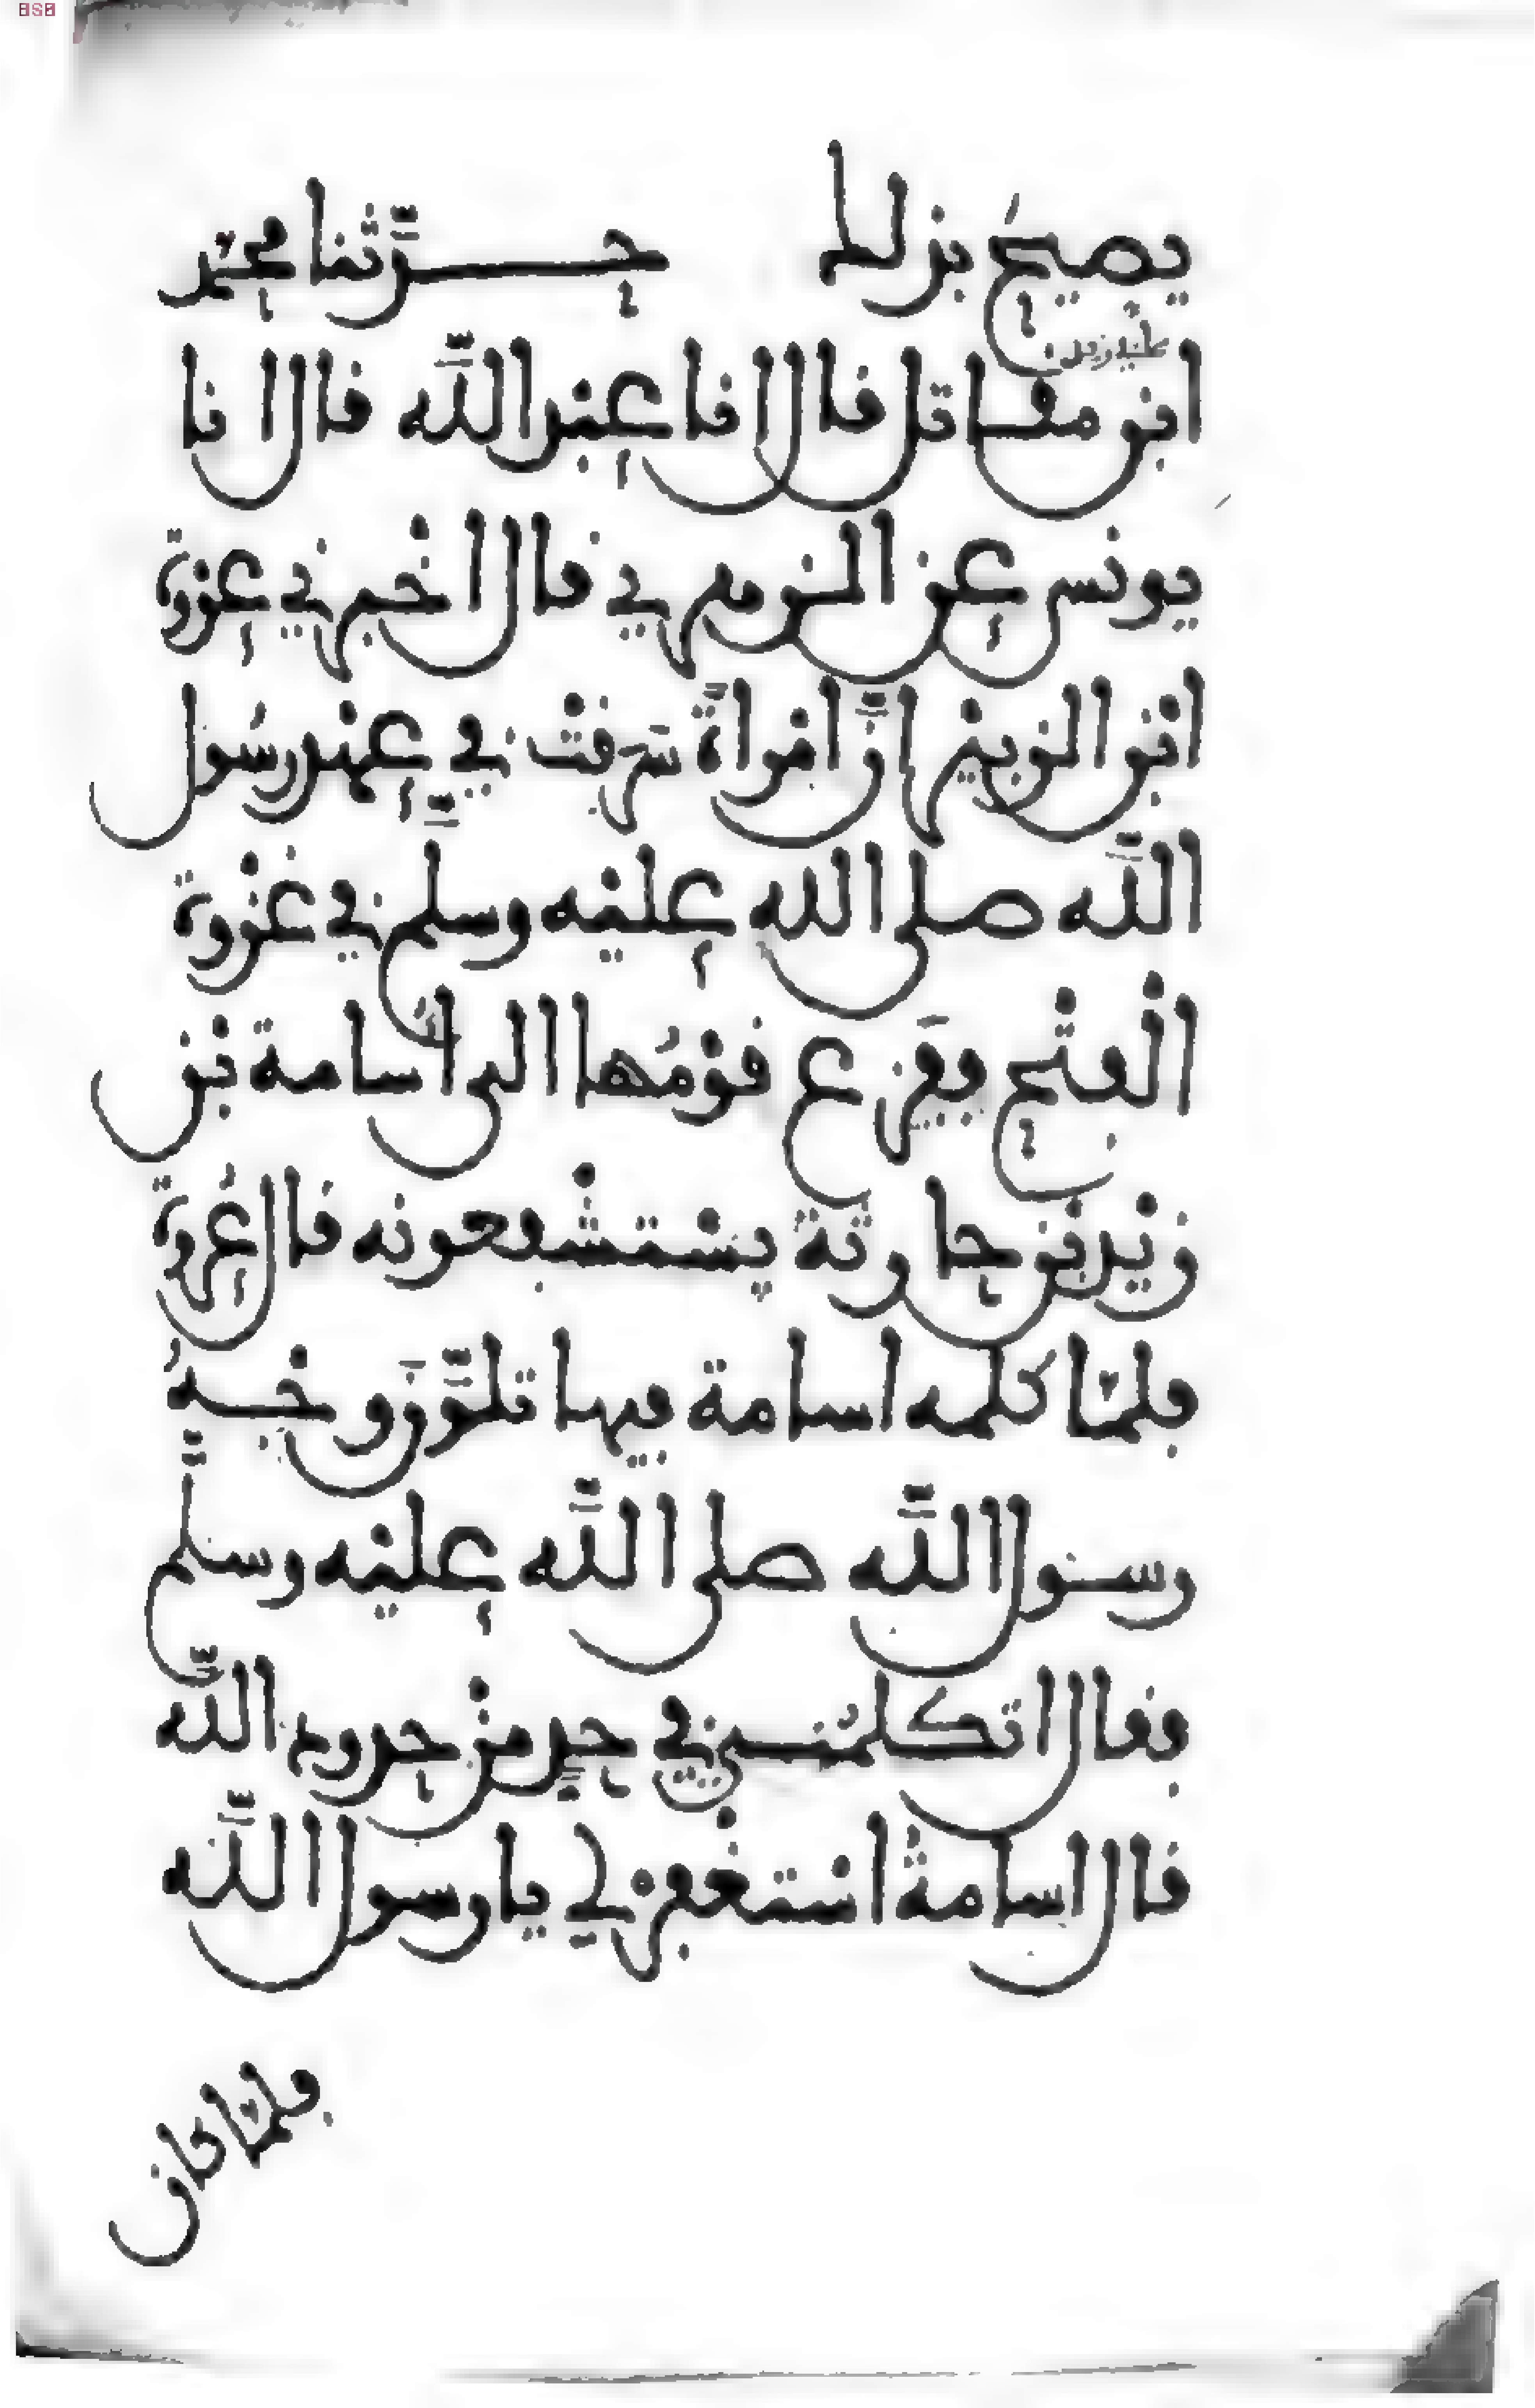 يصيح بذلك حدثنا محمد
ابن مقاتل قال انا عبد الله قال انا
يونس عن الزهري قال اخبرني عروة
ابن الزبير ان امراة سرقت في عهد رسول
الله صلى الله عليه وسلم في غزوة
الفتح ففزع قومها الى اسامة بن
زيد بن حارثة يستشفعونه قال عروة
فلما كلمه اسامة فيها تلون وجه
رسول الله صلى الله عليه وسلم
فقال اتكلمني في حد من حدود الله
قال اسامة استغفر لي يا رسول الله
فلما كان